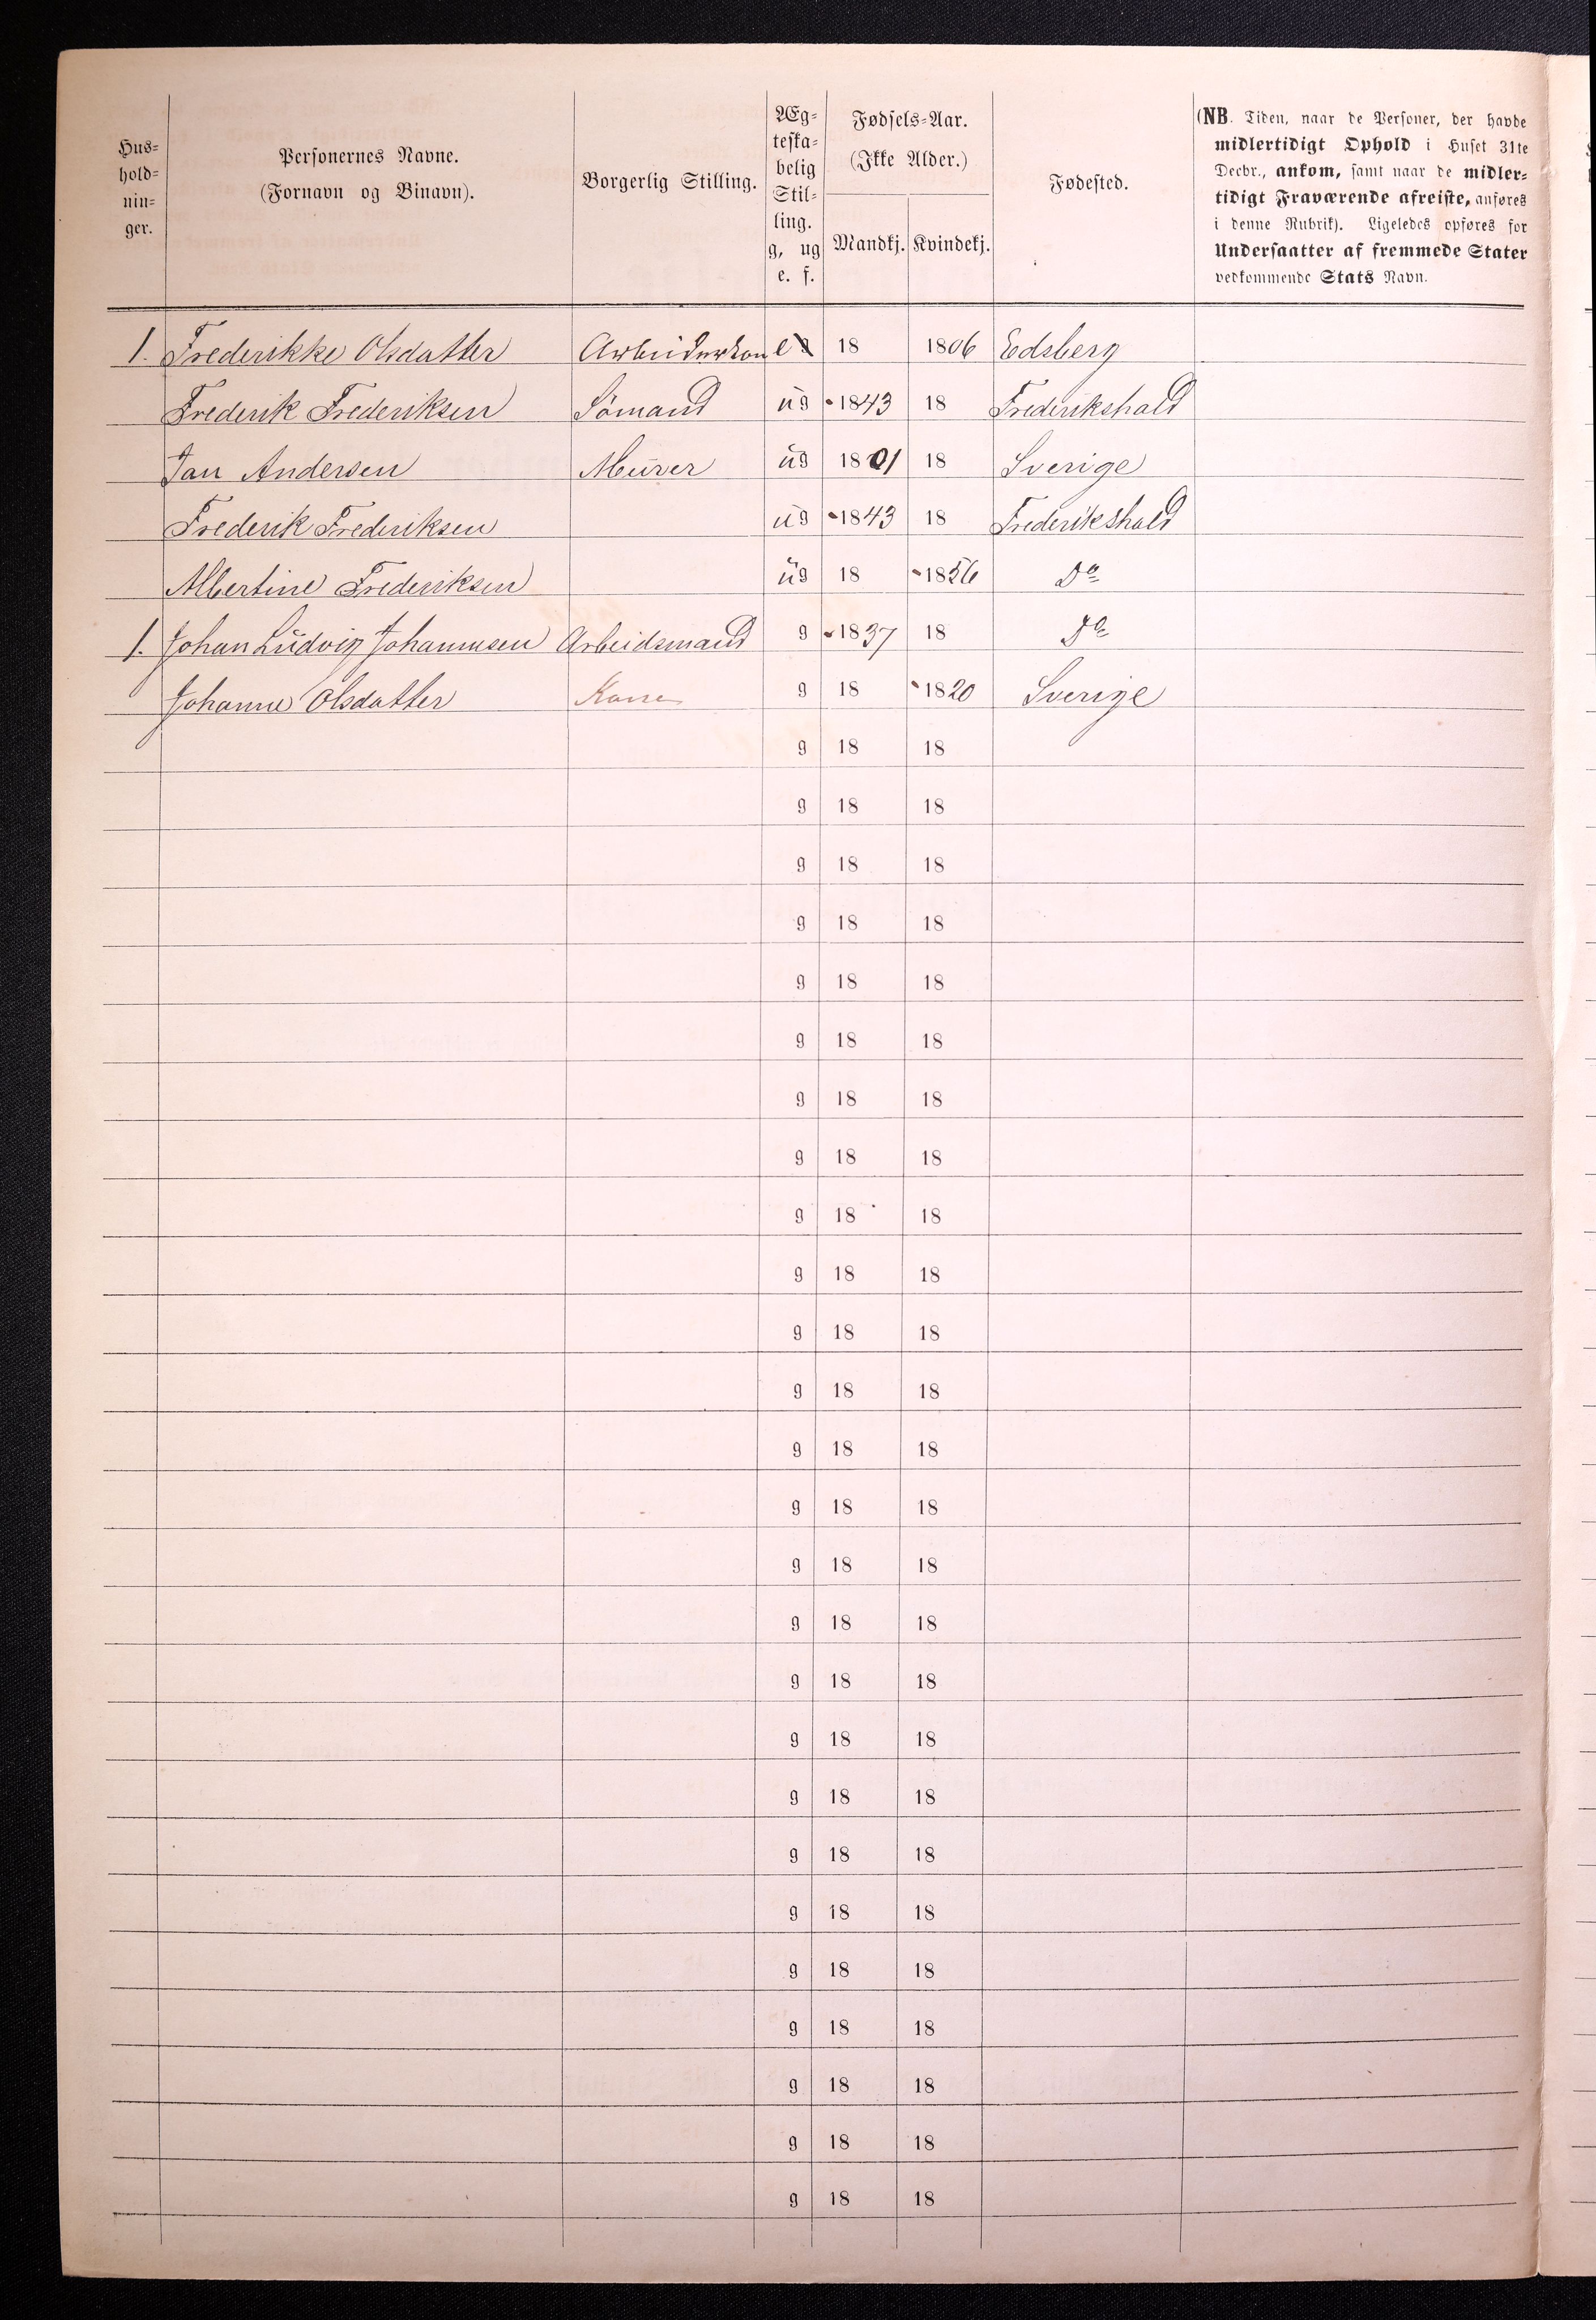 Hus-
hold-
nin-
ger.
Personernes Navne.
(Fornavn og Binavn).
Borgerlig Stilling.
Æg-
teska-
belig
Stil-
ling.
g, ug
e. f.
Fødsels-Aar.
(Ikke Alder.)
Mandkj. Kvindekj.
Fødested.
(NB. Tiden, naar de Personer, der havde
midlertidigt Ophold i Huset 31te
Decbr., ankom, samt naar de midler-
tidigt Fraværende afreiste, anføres
i denne Rubrik). Ligeledes opføres for
Undersaatter af fremmede Stater
vedkommende Stats Navn.
1. Frederikke Olsdatter Arbeiderkone e g 18 1806 Edsberg
Frederik Frederiksen Sömand ug 1843 18 Frederikshald
Jan Andersen Murer ug 1801 18 Sverige
Frederik Frederiksen ug 1843 18 Frederikshald
Albertine Frederiksen ug 18 1856 Do
1. Johan Ludvig Johannesen Arbeidsmand g 1837 18 Do
Johanne Olsdatter Kone g 18 1820 Sverige
g 18 18
g 18 18
g 18 18
g 18 18
g 18 18
g 18 18
g 18 18
g 18 18
g 18 18
g 18 18
g 18 18
g 18 18
g 18 18
g 18 18
g 18 18
g 18 18
g 18 18
g 18 18
g 18 18
g 18 18
g 18 18
g 18 18
g 18 18
g 18 18
g 18 18
g 18 18